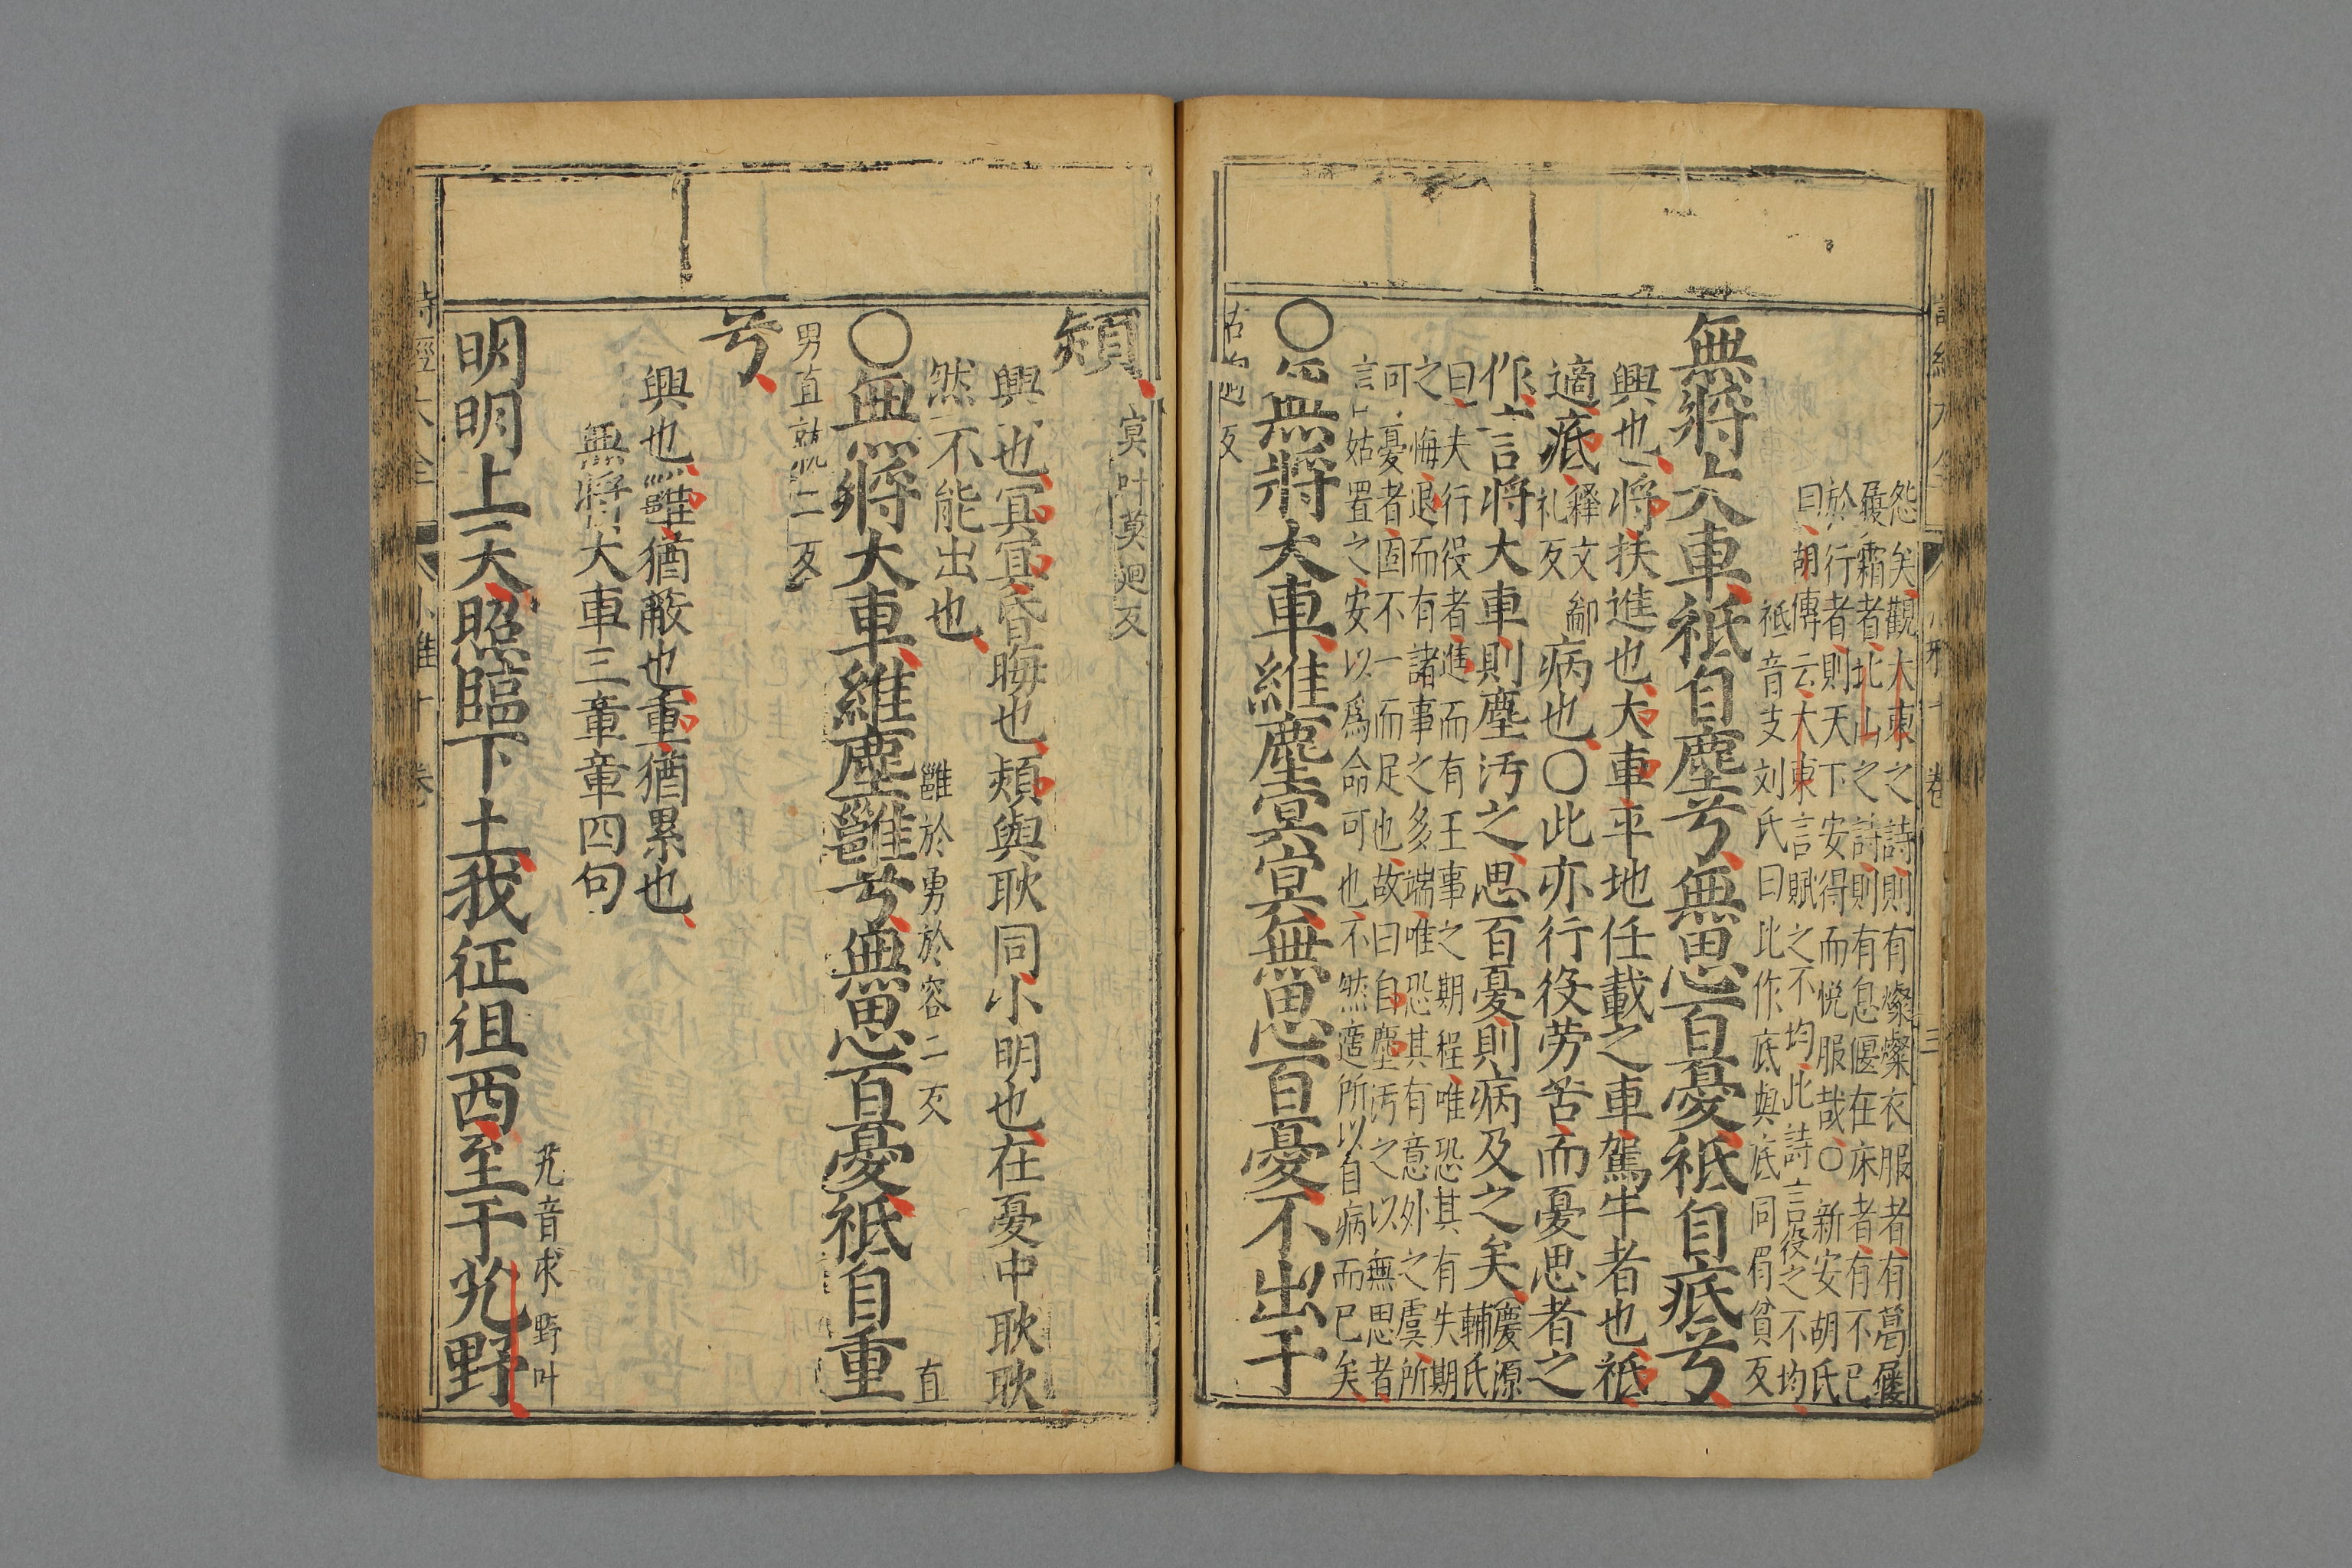 怨矣觀大東之詩則有燦燦衣服者有葛屨
履霜者北山之詩則有息偃在床者有不已
於行者則天下安得而悅服哉○新安胡氏
曰胡傳云大東言賦之不均此詩言役之不均
無將大車祇自塵兮無思百憂祇自疧兮
祇音支刘氏曰此作底與底同眉貧反
興也將扶進也大車平地任載之車駕牛者也祇
適疧釋文鄗礼反病也○此亦行役劳苦而憂思者之
作言將大車則塵汚之思百憂則病及之矣慶源輔氏
曰夫行役者進而有王事之期程唯恐其有失期
之悔退而有諸事之多端唯恐其有意外之虞所
可憂者固不一而足也故曰自塵汚之以無思者
言姑置之安以爲命可也不然適所以自病而已矣
○無將大車維塵冥冥無思百憂不出于
熲
冥叶莫迥反
興也冥冥昏晦也熲與耿同小明也在憂中耿耿
然不能出也
○無將大車維塵雝兮無思百憂祇自重
雝於勇於容二反
直
兮
勇直龍二反
興也雝猶蔽也重猶累也
無將大車三章章四句
明明上天照臨下土我征徂西至于艽野
艽音求野叶
詩經大全
小雅十卷